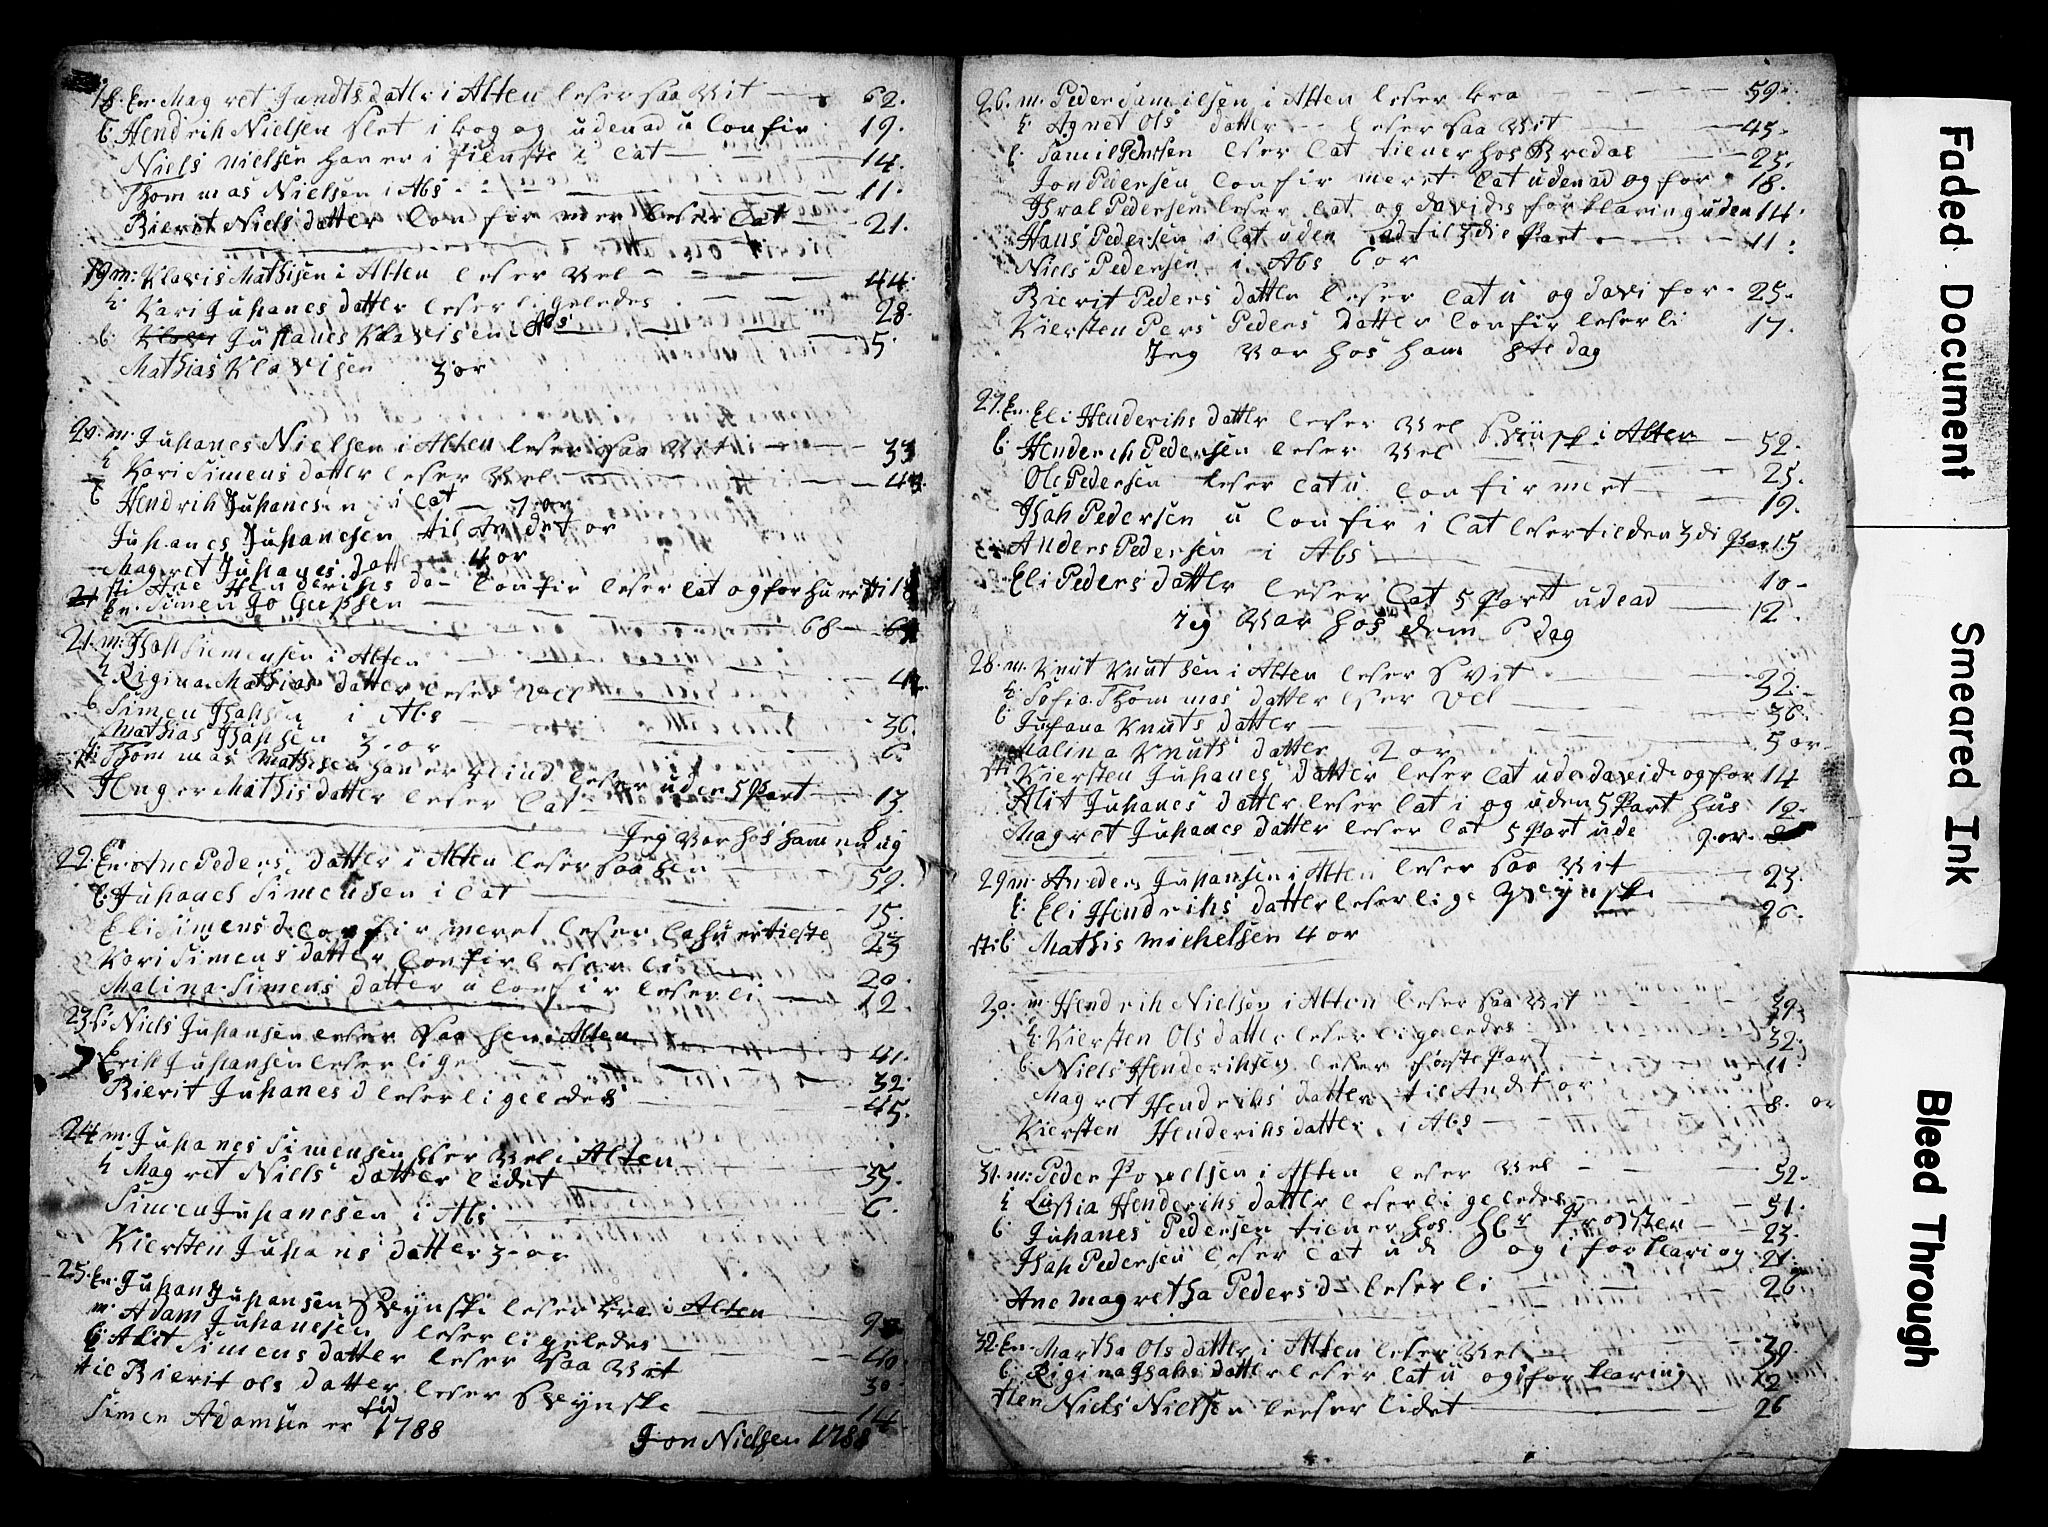 18. En. Magret Jandtsdatler i Alten leser saa Wit — 62.
b: Hendrih Nielsen slet i bog og udenad u Confir 19.
Niels Nielsen han er i tieniste i Cat — 14.
Thommas Nielsen i Abs — 11.
Bierit Niels datter Confirmer leser Cat — 21.
19 m: Klavis Mathisen i Alten leser Wel — 44.
h: Kari Juhanes datter leser ligeledes — 28.
b: Juhanes Klavisen i Abs — 5.
Mathias Klavisen 3 or
20. m: Juhanes Nielsen i Alten leser saa Wit — 33
h Kari Simens datter leser Wel — 44.
b Hendrih Juhanesen i Cat — 7 or
Juhanes Juhanesen til Andet or
Magret Juhanes datter 4 or
sti Ane Henderihs da- Confir leser Cat og for hu er ti 18
En. Simen Josepsen — 68
21. m: Isah Siemensen i Alten
h Rigina Mathias datter leser Vel — 
b Simen Isahsen i Abs — 36.
Mathias Isahsen 3-or 6.
Thommas Mathisen han er blind leser uden 5 Part — 13.
Inger Mathis datter leser Cat
Jeg Var hos ham en ug
22. En. Ane Peders datter i Alten leser saa hen — 59.
b: Juhanes Simensen i Cat — 15.
Eli Simens d. Confirmeret leser 23
Kari Simens datter Confir leser li — 20.
Malina Simens datter u Confir leser li — 12.
23. Niels Juhansen leser saa hen i Alten — 41.
Erih Juhansen leser lige — 32.
Bierit Juhanes d leser ligeledes — 45.
24. m: Juhanes Simensen leser Wel i Alten
h Magret Niels datter lidet — 35.
Simen Juhanesen i Abs — 6.
Kiersten Juhans datter 3-or
25. En. Juhans Juhansen Svynske leser bra i Alten
m: Adam Juhanesen leser ligeledes — 
h: Alit Simens datter leser saa Wit 40.
tie Bierit Ols datter leser Svynske 30.
Simen Adamsen er fød 1788 14.
Jon Nielsen 1788
26. m: Peder Samilsen i Alten leser bra — 59.
h: Agnet Ols datter — leser saa Wit — 45.
b Samil Pedersen leser Cat tiener hos Bredal — 25.
Jon Pedersen Confirmeret Cat udenad og for 18.
Isral Pedersen leser Cat og davids forklaring uden 14.
Hans Pedersen i Cat uden ad til 3die Part — 11.
Niels Pedersen i Abs 6 or
Bierit Peders datter leser Cat u og davi for- 25.
Kiersten Pers Peders datter Confir leser li 17.
Jeg Var hos ham 8te dag
27. En. Eli Henderihs datter leser Wel Svinsk i Alten — 52.
b: Henderih Pedersen leser Wel — 25.
Ole Pedersen leser Cat u Confirmert — 19.
Isah Pedersen u Confir i Cat leser til den 3di Par 15
Anders Pedersen i Abs — 10-
Eli Peders datter leser Cat 5 Part udead — 12.
Jeg Var hos dem 6 dag
28. m. Knut Knutsen i Alten leser S vit — 32.
h: Sofia Thommas datter leser Vel — 36.
b: Juhana Knuts datter — 5 or
Malina Knuts datter 2 or
sti Kiersten Juhanes datter leser Cat ude davids og for 14
Alit Juhanes datter leser Cat i og uden 5 Part hus 12.
Magret Juhanes datter leser Cat 5 Part ude 9. or.
29 m: Anders Juhansen i Alten leser saa Wit — 23.
h: Eli Hendrihs datter leser lige Svynske — 26.
sti b Mathis Michelsen 4 or
30. m: Hendrih Nielsen i Alten leser saa Wit — 39.
h: Kiersten Ols datter leser ligeledes — 32.
b: Niels Henderihsen leser første Part — 11.
Magret Hendrihs datter til Andet or 8. or
Kiersten Henderihs datter i Abs —
31. m: Peder Povelsen i Alten leser Wel — 52.
h Lusia Henderihs datter leser ligeledes — 51.
b Juhanes Pedersen tiener hos Hr. Prosten — 23.
Isah Pedersen leser Cat ude og i forklaring 21.
Ane Magretha Peders d — leser li — 26.
32. En. Martha Ols datter i Alten leser Wel — 39.
b Rigina Isahs datter leser Cat u og forklaring 12
tien Niels Nielsen leeser lidet — 26
Faded Document
Smeared Ink
Bleed Through